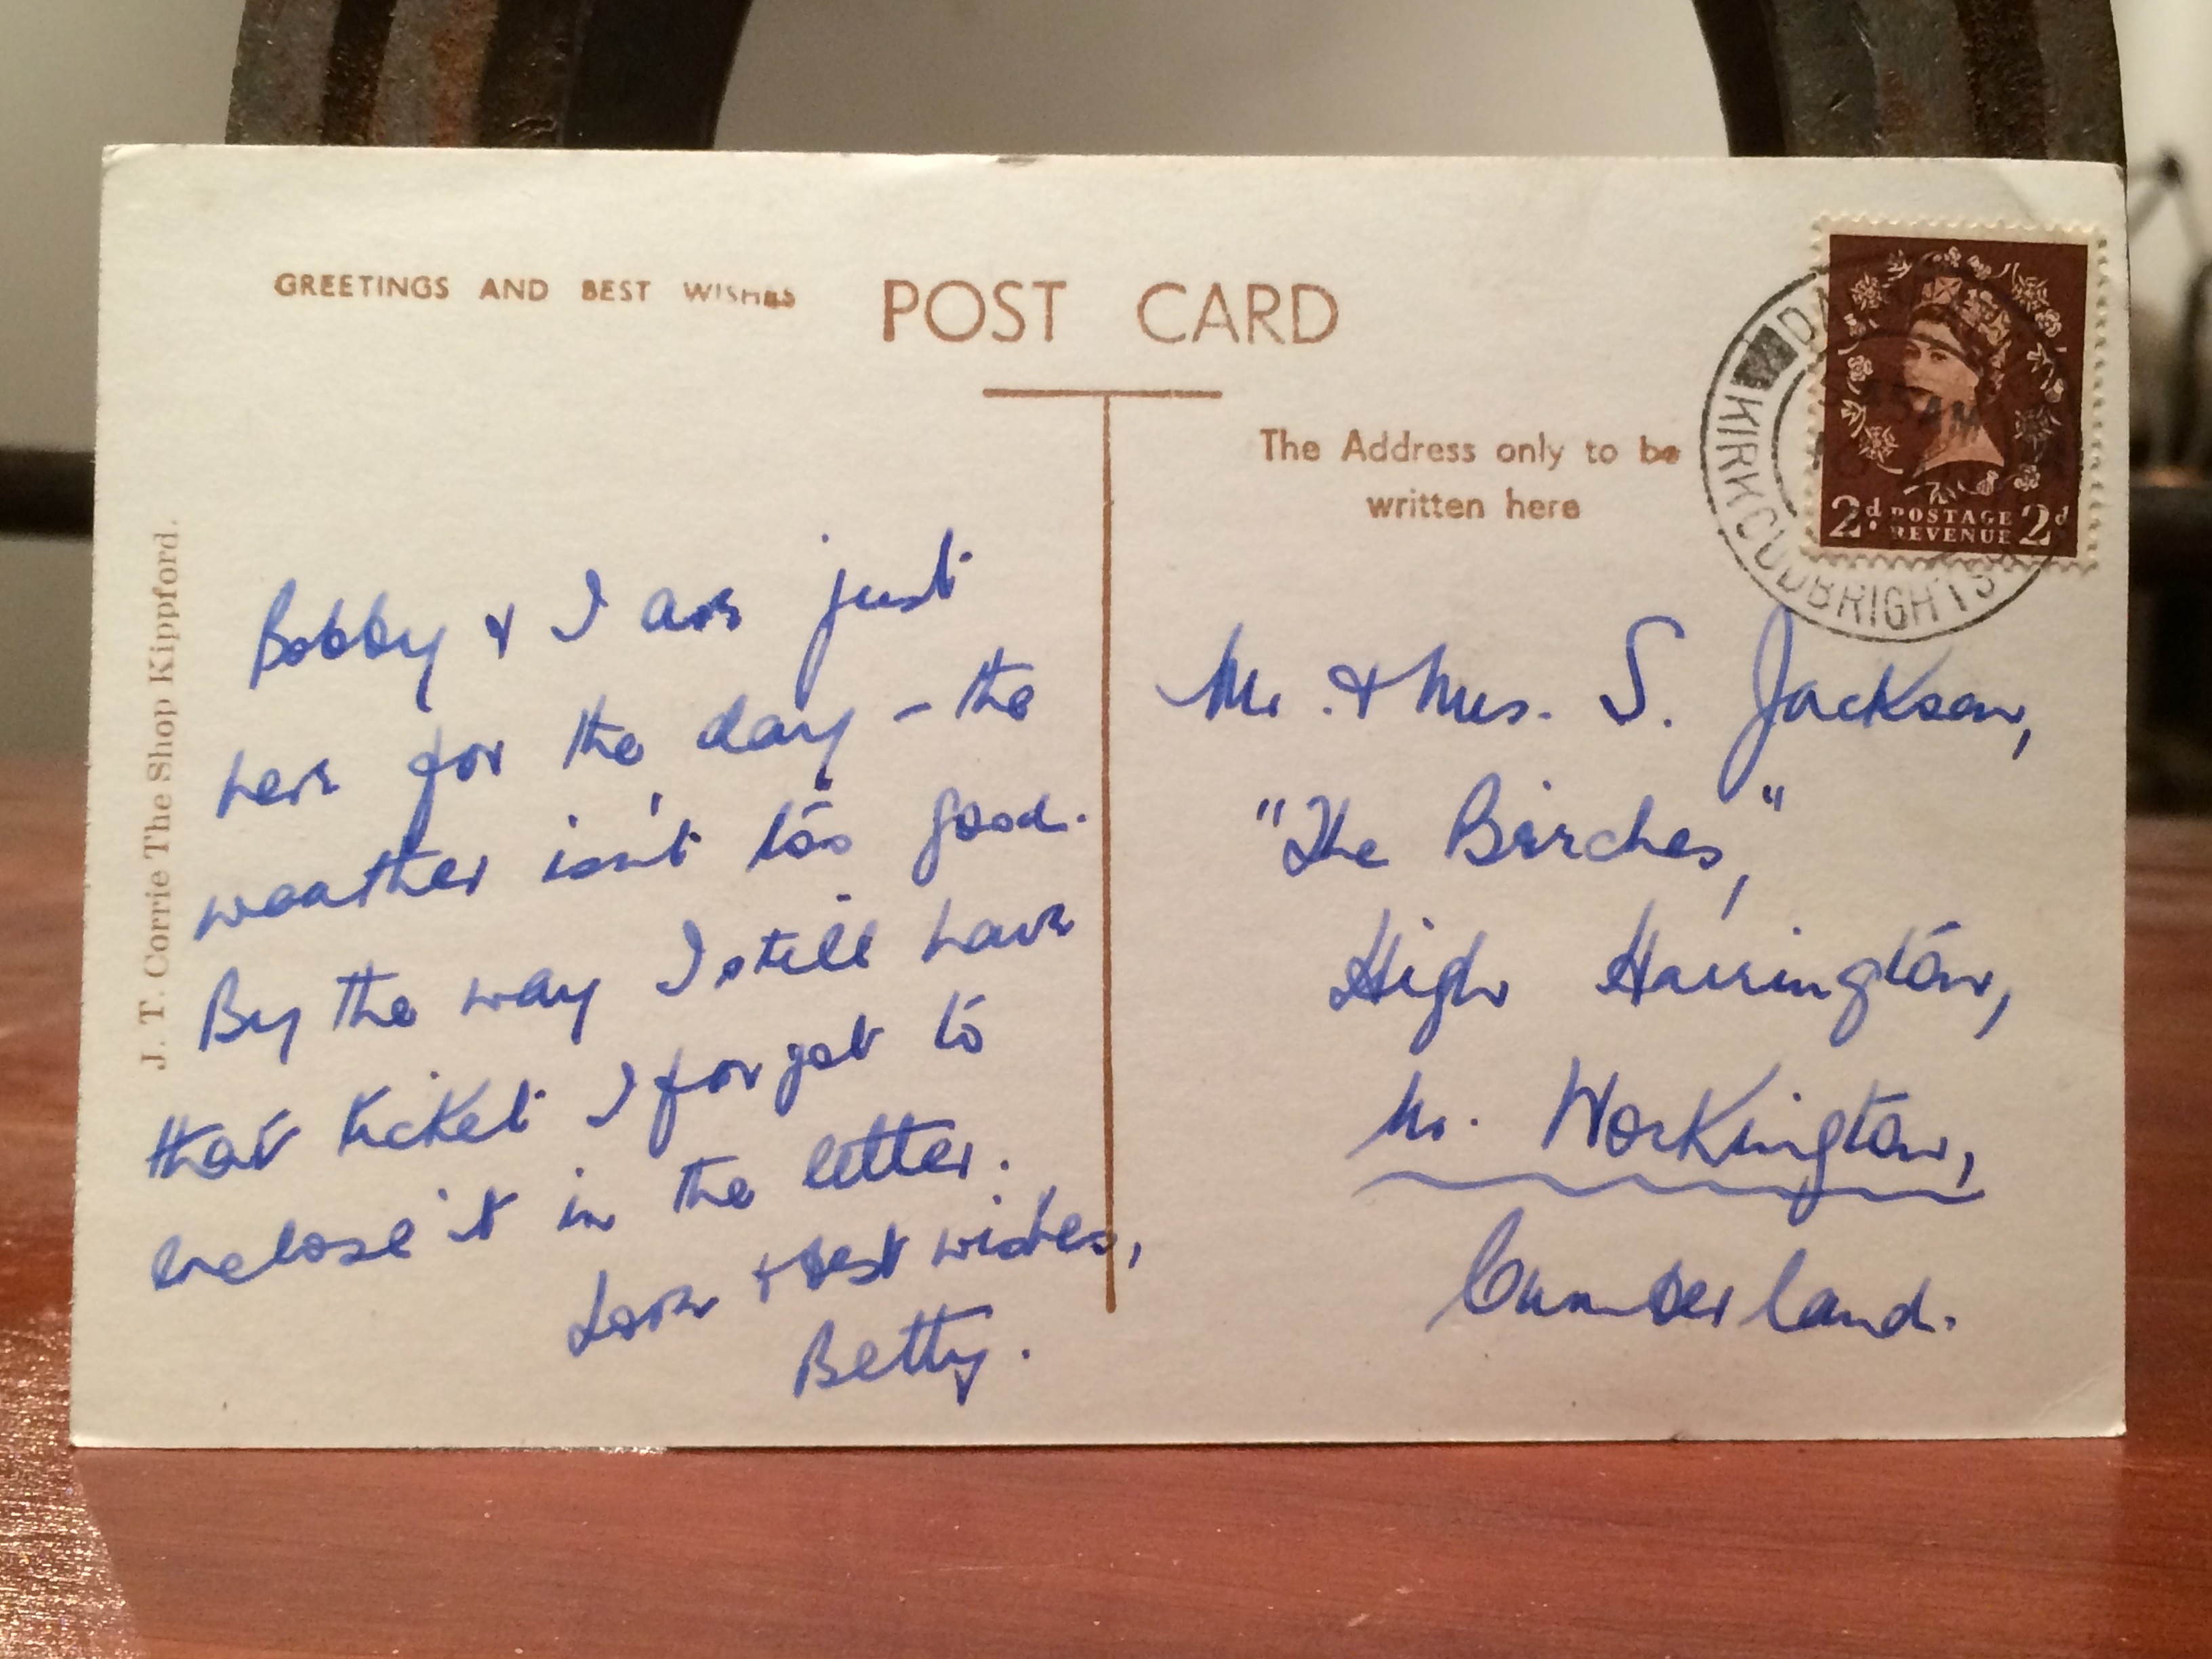 GREETINGS AND BEST WISHES
POST CARD
The Address only to be
written here
J. T. Corrie The Shop Kippford.
Bobby & I are just
here for the day – the
weather isn't too good.
By the way I still have
that ticket I forgot to
enclose it in the letter.
Love & best wishes,
Betty.
2d POSTAGE 2d
REVENUE
KIRKCUDBRIGHTS
AM
Mr. & Mrs. S. Jackson,
"The Birches,"
High Harrington,
Nr. Workington,
Cumberland.